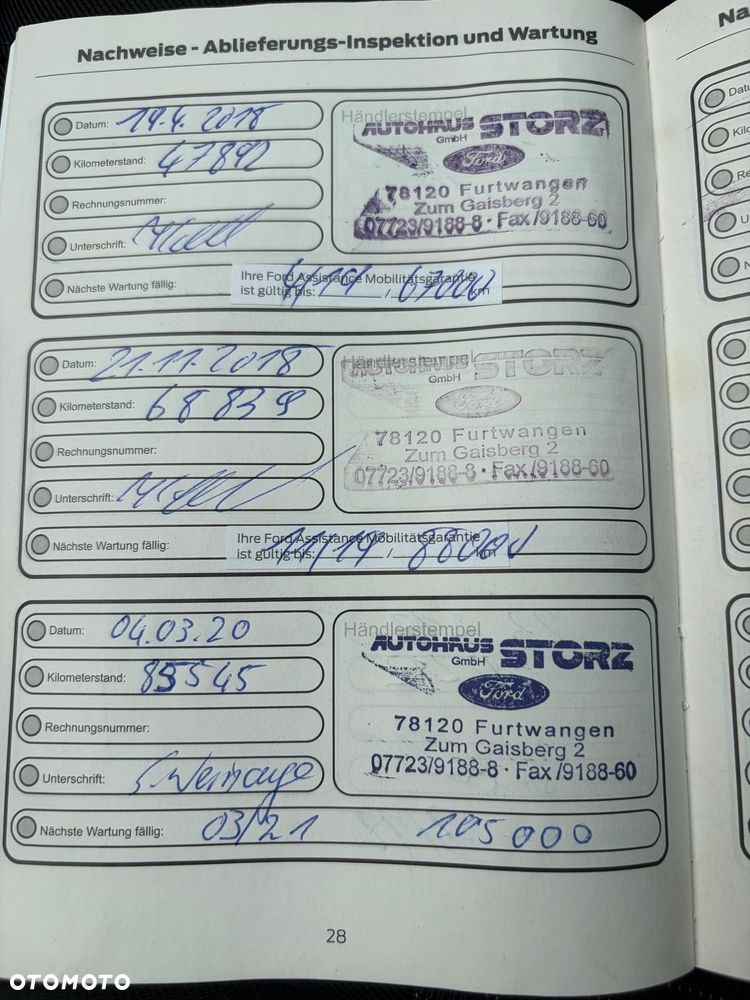 Nachweise - Ablieferungs-Inspektion und Wartung
Na
Datum: 19.4. 2018
Kilometerstand: 47892
Rechnungsnummer:
Unterschrift:
Händlerstempel
AUTOHAUS STORZ
GmbH
Ford
78120 Furtwangen
Zum Gaisberg 2
07723/9188-8 · Fax/9188-60
Nächste Wartung fällig: 4/19 67000
Ihre Ford Assistance Mobilitätsgarantie
ist gültig bis: / km
Datum: 21.11.2018
Kilometerstand: 68839
Rechnungsnummer:
Unterschrift:
Händlerstempel
AUTOHAUS STORZ
GmbH
Ford
78120 Furtwangen
Zum Gaisberg 2
07723/9188-8 · Fax/9188-60
Nächste Wartung fällig: 11/19
Ihre Ford Assistance Mobilitätsgarantie
ist gültig bis: / km
Datum: 04.03.20
Kilometerstand: 85545
Rechnungsnummer:
Unterschrift:
Händlerstempel
AUTOHAUS STORZ
GmbH
Ford
78120 Furtwangen
Zum Gaisberg 2
07723/9188-8 · Fax/9188-60
Nächste Wartung fällig: 03/21 105000
28
OTOMOTO